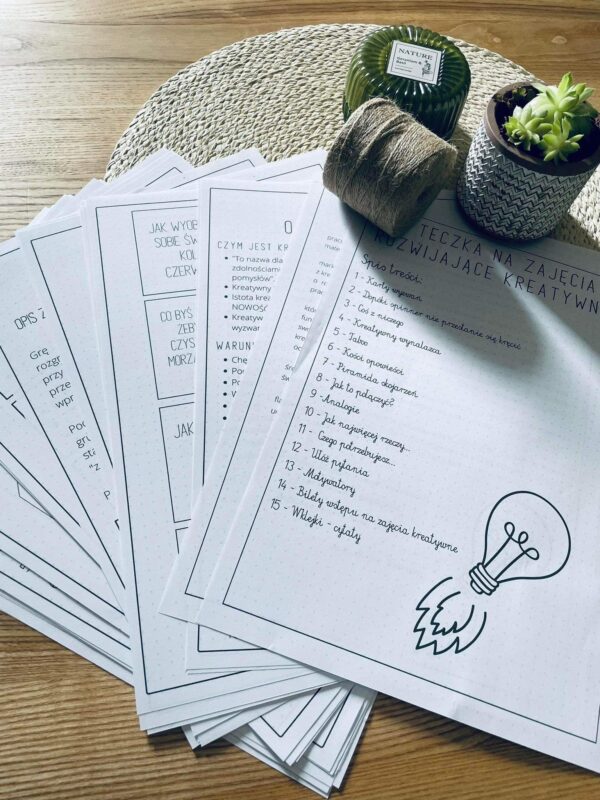 NATURE
TECZKA NA ZAJĘCIA
ROZWIJAJĄCE KREATYWN
Spis treści:
1 - Karty wyzwań
2 - Dopóki spinner nie przestanie się kręcić
3 - Coś z niczego
4 - Kreatywny wynalazca
5 - Taboo
6 - Kości opowieści
7 - Piramida skojarzeń
8 - Jak to połączyć?
9 - Analogie
10 - Jak najwięcej rzeczy...
11 - Czego potrzebujesz...
12 - Ułóż pytania
13 - Motywatory
14 - Bilety wstępu na zajęcia kreatywne
15 - Wklejki - cytaty
CZYM JEST KR
"To nazwa dla
zdolnościami
pomysłów".
Kreatywny
Istota krea
NOWOŚĆ
Kreatyw
wyzwar
WARUN
Che
Po
JAK WYOB
SOBIE ŚW
KOL
CZERW
CO BYŚ
ŻEBY
CZYS
MORZA
JAK
OPIS Z
Grę
rozgr
przy
prze
wpr
Poc
gru
"z